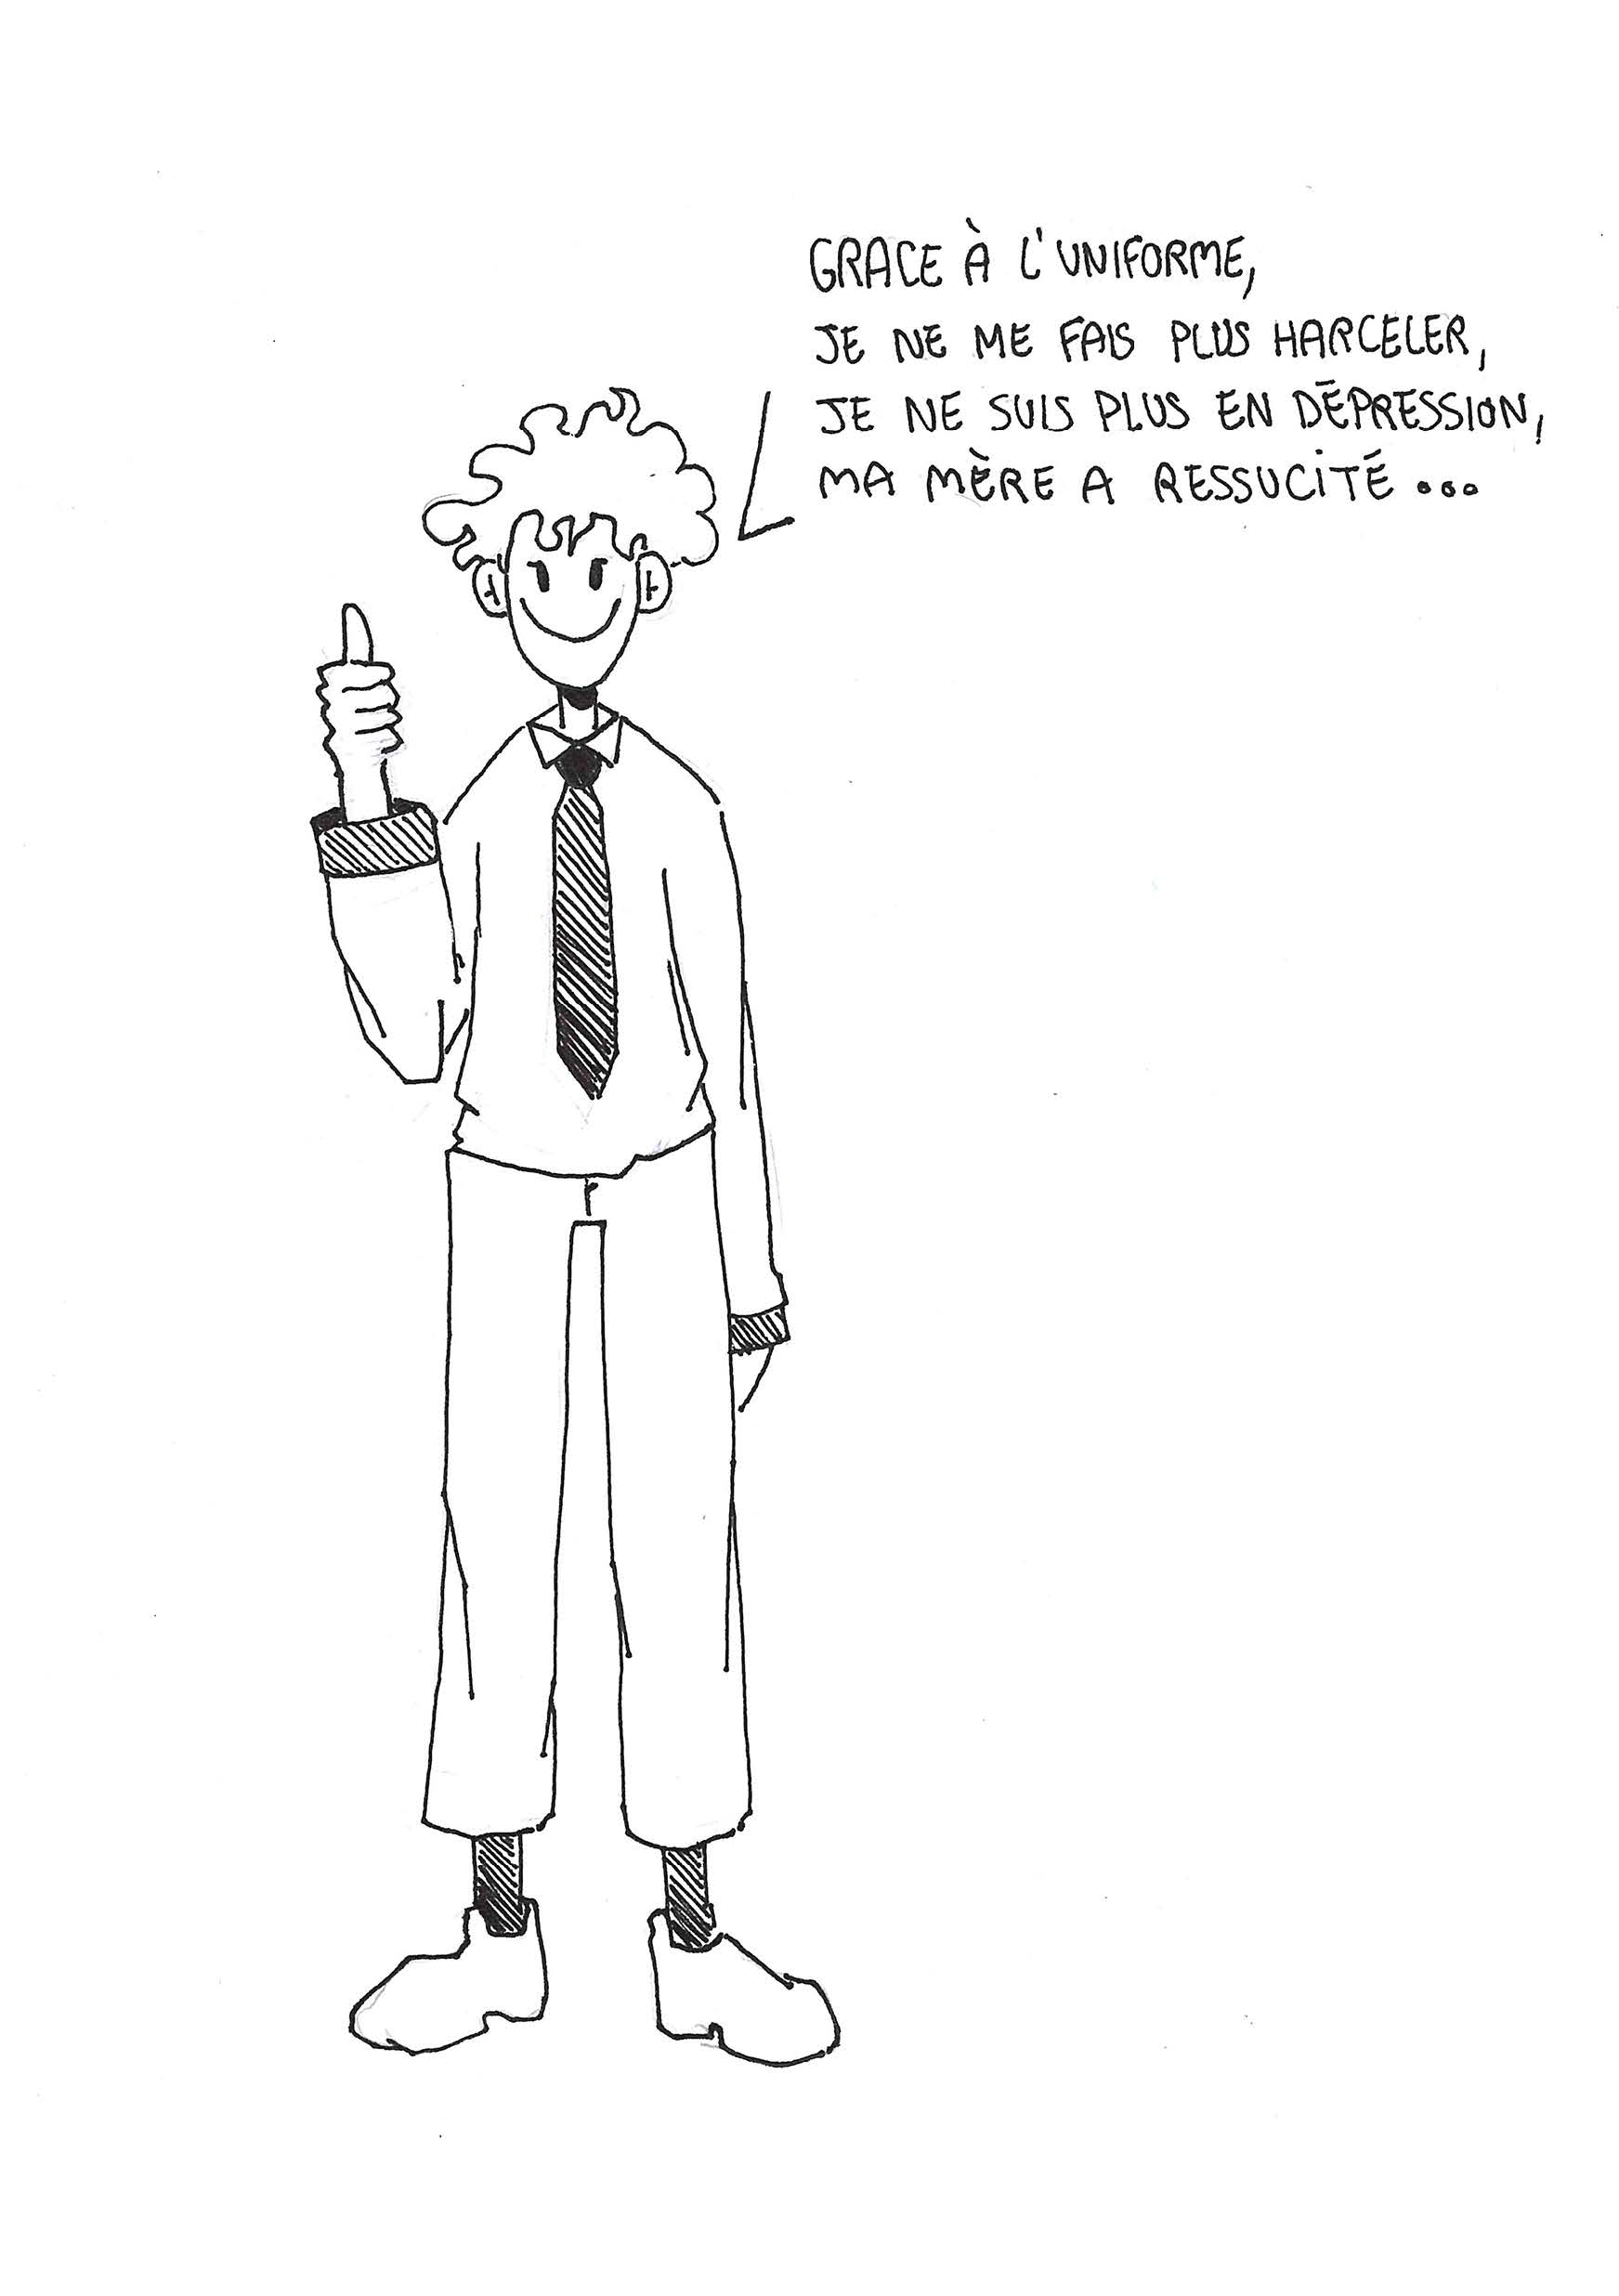 GRACE À L'UNIFORME,
JE NE ME FAIS PLUS HARCELER,
JE NE SUIS PLUS EN DÉPRESSION,
MA MÈRE A RESSUCITÉ...